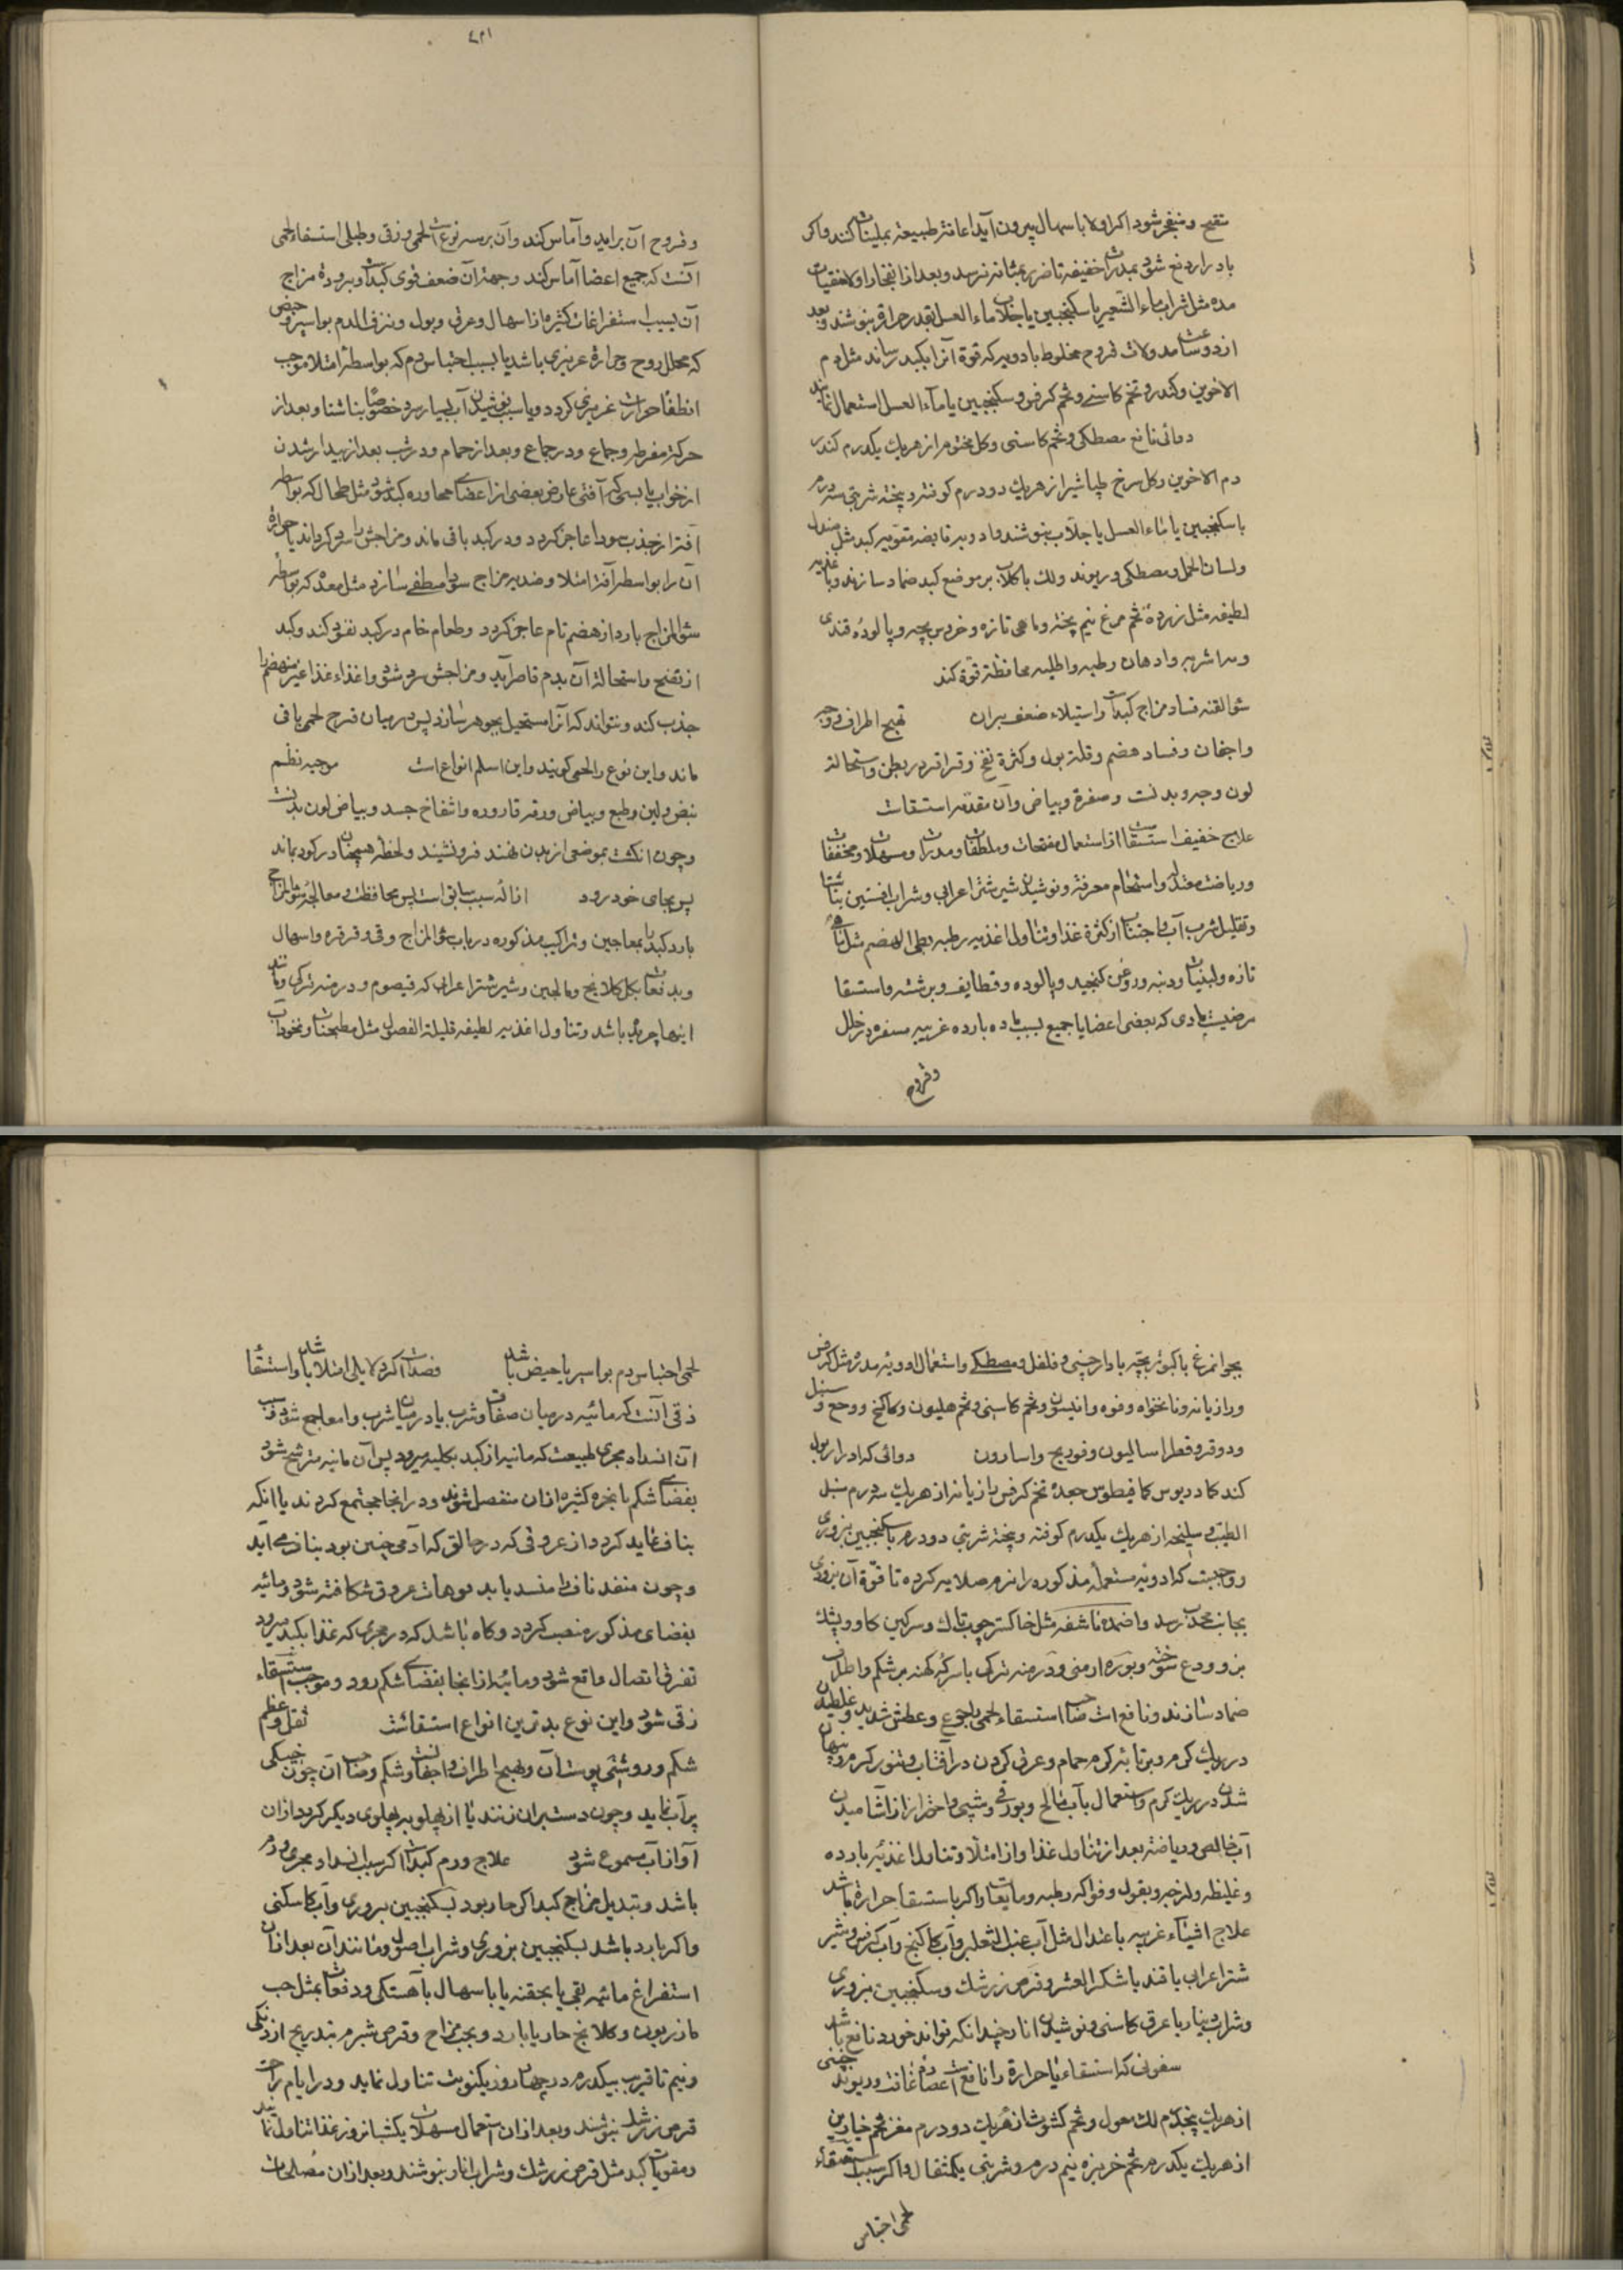 تقیح و منفجر شود اگر اولا باسهال بیرون آید اعانة طبیعة بملینات کنند و اگر
بادرار دفع شود بمدرات خفیفه تا ضرر بمثانه نرسد و بعد از انفجار اولا منقیات
مده مثل شراب ماء الشعیر با سکنجبین یا جلاب ماء العسل بقدر حرارة بنوشند و بعد
از دو ساعت مدملات قروح مخلوط بادویه که قوة آنرا بکبد رساند مثل دم
الاخوین و کندر و تخم کاسنی و تخم کرفس و سکنجبین یا ماء العسل استعمال نمایند
دوائی نافع مصطکی و تخم کاسنی و گل مختوم از هریک یکدرم کندر
دم الاخوین و گل سرخ طباشیر از هریک دو درم کوفته و بیخته شربتی سه درم
با سکنجبین یا ماء العسل یا جلاب بنوشند و ادویه قابضه مقویه کبد مثل صندل
و لسان الحمل و مصطکی و ریوند و لک با گلاب بر موضع کبد ضماد سازند و باغذیه
لطیفه مثل زرده تخم مرغ نیم پخته و ماهی تازه و خروس بچه و پالوده قندی
و سه اشربه و ادهان رطبه و اطلیه محافظة قوة کند
سوء القنیه فساد مزاج کبدست و استیلاء ضعف بران تهبج اطراف و وجه
و اجفان و فساد هضم و قلة بول و کثرة نفخ و قراقر در بطن و استحالة
لون وجه و بدنست و صفرة و بیاض و آن مقدمه استسقاست
علاج خفیف استسقاست از استعمال مفتحات و ملطفات و مدرات و مسهلات و مجففات
و ریاضت معتدل و استحمام معرقة و نوشیدن شیر شتر اعرابی و شراب افسنتین بناشتا
و تقلیل شرب آب و اجتناب از کثرة غذا و تناول اغذیه رطبه بطی الهضم مثل ماهی
تازه و لبنیات و دنبه و روغن کنجید و پالوده و قطایف و برشته و استسقا
مرضیست مادی که بعضی اعضا یا جمیع بسبب ماده بارده غریبه مسفره در خلل
و فروج
۴۲۱
و فروج آن برآید و آماس کند و آن بر سه نوعست لحمی و زقی و طبلی استسقاء لحمی
آنست که جمیع اعضا آماس کند و جهة آن ضعف قوی کبدست و برودة مزاج
آن بسبب استفراغات کثیره از اسهال و عرق و بول و نزف الدم بواسیر و حیض
که محلل روح و حرارة غریزی باشد یا بسبب احتباس دم که بواسطه امتلا موجب
انطفا حرارت غریزی گردد و یا بسبب نوشیدن آب بسیار سرد خصوصا بناشتا و بعد از
حرکة مفرطه و جماع و در جماع و بعد از حمام و در شب بعد از بیدار شدن
از خواب یا بسبب آفتی عارض بعضی از اعضا مجاوره کبد شود مثل طحال که بواسطه
آفة از جذب سودا عاجز گردد و در کبد باقی ماند و مزاجش را سرد گرداند یا حرارة
آن را بواسطه آفة امتلا و ضدیه مزاج سودا منطفی سازد مثل معده که بواسطه
سوء المزاج بارد از هضم تام عاجز گردد و طعام خام در کبد نفوذ کند و کبد
از نضج و استحالة آن بدم قاصر آید و مزاجش سرد شود و اعضاء غذا غیر منهضم را
جذب کند و نتواند که آنرا مستحیل بجوهر سازد پس در میان فرج لحمی باقی
ماند و این نوع را لحمی گویند و این اسلم انواع است موجیه نظم
نبض و لین و طبع و بیاض و رقة قاروره و انتفاخ جسد و بیاض لون بدنست
و چون انگشت بموضعی از بدن نهند فرونشیند و لحظة همچنان در گود بماند
پس بجای خود رود ازاله سبب سابق است پس محافظت و معالجه سوء المزاج
بارد کبد بمعاجین و تراکیب مذکوره در باب سوء المزاج و قی و قرقره و اسهال
و بدفعات بکل کلانج و مالجبین و شیر شتر اعرابی که قیصوم و درمنه ترکی و مانند
اینها چریده باشد و تناول اغذیه لطیفه قلیلة الفضول مثل مطجنات و نخوداب
بجوانمرغ با کبوتر بچه با دارچینی و فلفل و مصطکی و استعمال ادویه مدره مثل کرفس
و رازیانه و نانخواه و فوه و انیسون و تخم کاسنی و تخم هلیون و کاکنج و وج و سنبل
و دوقو و قطر اسالیون و فودنج و اسارون دوائی که ادرار بول
کند کمادریوس کمافیطوس جعده تخم کرفس رازیانه از هریک سه درم سنبل
الطیب و سلیخه از هریک یکدرم کوفته و بیخته شربتی دو درم با سکنجبین بزوری
و واجبست که ادویه مستعمله مذکوره را نرم صلایه کرده تا قوة آن بزودی
بجانب محدب رسد و اضمده ناشفه مثل خاکستر چوب تاک و سرگین گاو و پشک
بز و ودع سوخته و بوره ارمنی و درمنه ترکی با سرکه کهنه بر شکم و اطراف
ضماد سازند و نافع است صاحب استسقاء لحمی را جوع و عطش شدید و غلطیدن
در ریک گرم و بر تابه گرم حمام و عرق کردن در آفتاب و تنور گرم و پنهان
شدن در ریک گرم و استعمال بآب مالح و بورقی و شبی و احتراز از آشامیدن
آب خالص و ریاضة بعد از تناول غذا و از امتلا و تناول اغذیه بارده
و غلیظه و لزجه و بقول و فواکه رطبه و مایعات و اگر با استسقا حرارة باشد
علاج اشیاء غریبه باعتدال مثل آب عنب الثعلب و آب کاکنج و آب کرفس و شیر
شتر اعرابی با قند یا شکر العشر و قرص زرشک و سکنجبین بزوری
و شراب دینار با عرق کاسنی و نوشیدن انار چندانکه تواند خورد نافع باشد
سفوفی که استسقاء با حرارة را نافع است عصاره غافت و ریوند چینی
از هریک پنجدرم لک مغسول و تخم کشوث از هریک دو درم مغز تخم خیارین
از هریک یکدرم تخم خربزه نیم درم و شربتی یکمثقال و اگر سبب استسقاء
لحمی احتباس
لحمی احتباس دم بواسیر یا حیض باشد فصدست اگر دلایل امتلا باشد و استسقا
زقی آنست که مائیه در میان صفاق و ثرب یا در میان ثرب و امعا جمع شود و سبب
آن انسداد مجری طبیعت که مائیه از کبد بکلیه میرود پس آن مائیه مترشح شود
بفضای شکم یا بخره کثیره ازان منفصل شوند و در انجا مجتمع گردند یا آنکه
بناف نماید گردد از عروقی که در حالتی که آدمی جنین بود بناف می آید
و چون منفذ ناف را منسد یابد فوهات عروق شکافته شود و مائیه
بفضای مذکوره منصب گردد و گاه باشد که در مجری که غذا بکبد میرود
تفرق اتصال واقع شود و مائیه از انجا بفضای شکم رود و موجب استسقاء
زقی شود و این نوع بدترین انواع استسقاست ثقل و عظم
شکم و روشنی پوست آن و تهبج اطراف و اجفانست و شکم صاحب آن چون خیکی
پر آب نماید و چون دست بران زنند یا از پهلو بپهلوی دیگر گردد ازان
آواز آب مسموع شود علاج ورم کبدست اگر سبب انسداد مجری ورم
باشد و تبدیل مزاج کبد اگر حار بود بسکنجبین بزوری و آب کاسنی
و اگر بارد باشد بسکنجبین بزوری و شراب اصول و مانند آن بعد ازان
استفراغ مائیه بقی یا بحقنه یا باسهال بآهستگی و دفعات بمثل حب
مازریون و کلانج حار یا بارد و بحب مزاج و قرص شبرم بتدریج از دانگی
و نیم تا قریب بیکدرم در چهار روز یکنوبت تناول نماید و در ایام راحت
قرص زرشک بنوشند و بعد ازان استعمال مسهلات یکشبانروز غذا تناول نمایند
و مقویات کبد مثل قرص زرشک و شراب انار بنوشند و بعد ازان مصلحات